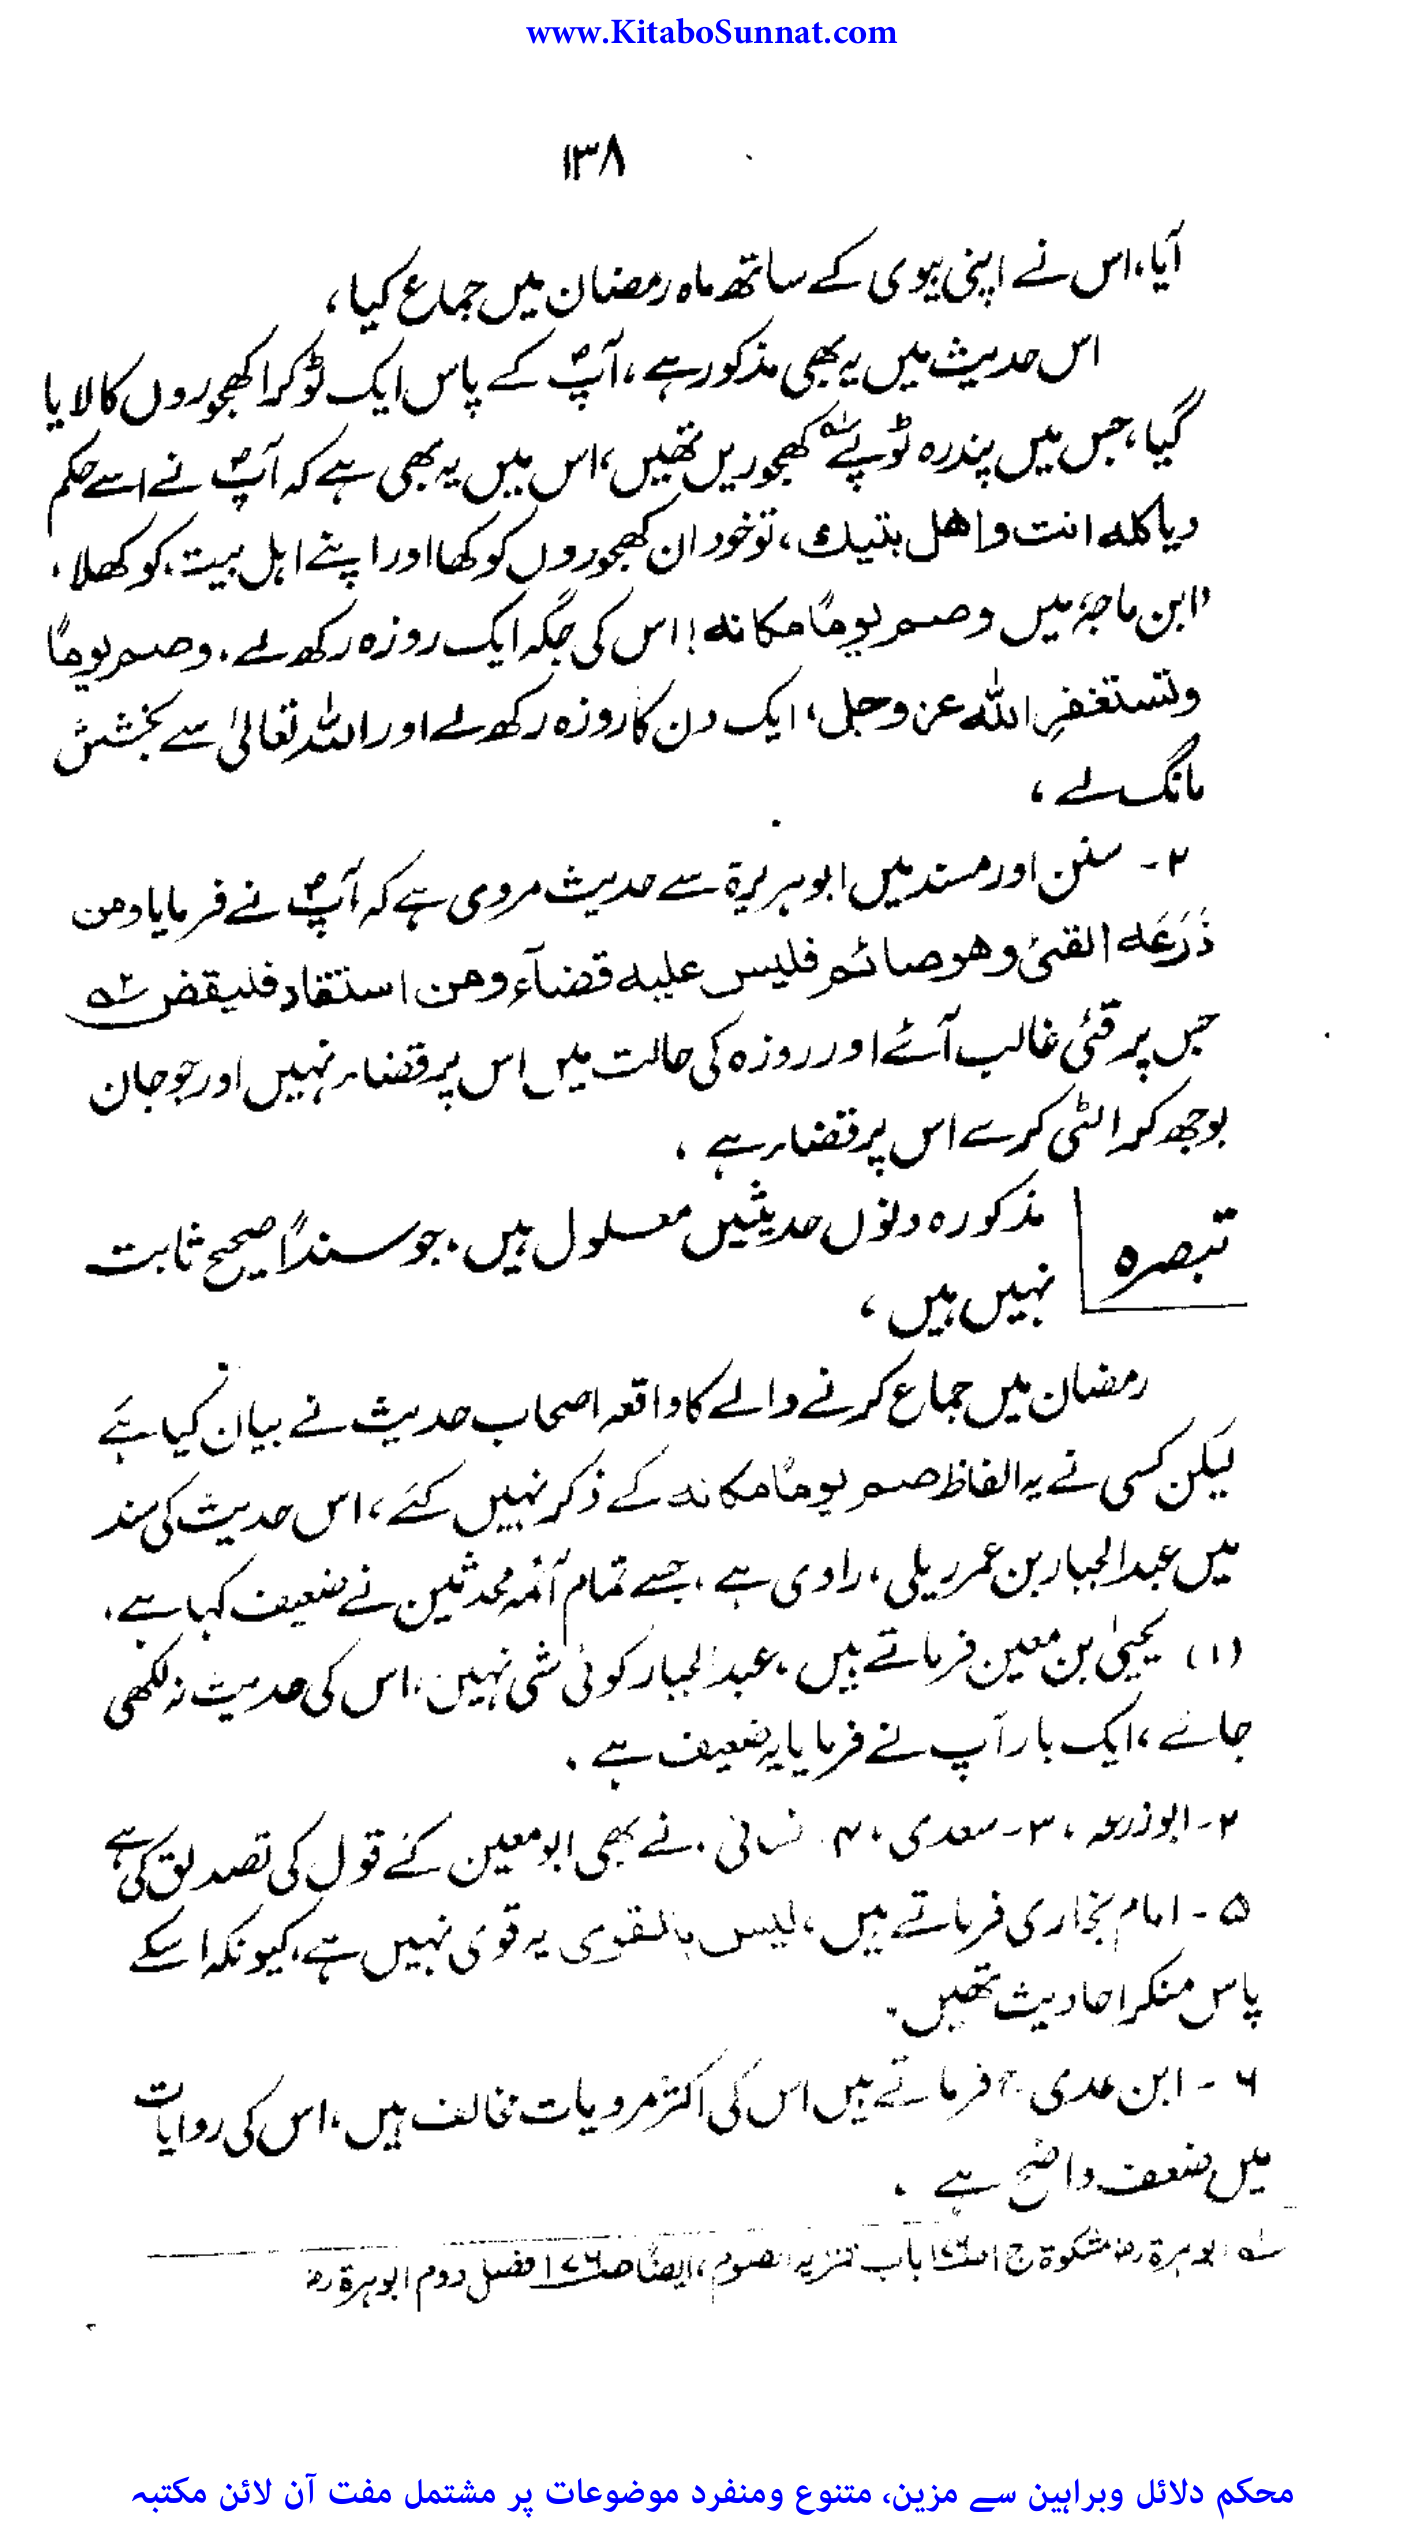 www.KitaboSunnat.com
۱۳۸
آیا،اس نے اپنی بیوی کے ساتھ ماہ رمضان میں جماع کیا،
اس حدیث میں یہ بھی مذکور ہے، آپؐ کے پاس ایک ٹوکرا کھجوروں کا لایا
گیا، جس میں پندرہ ٹوپے کھجوریں تھیں، اس میں یہ بھی ہے کہ آپؐ نے اسے حکم
دیا کله انت واهل بتيك، تو خود ان کھجوروں کو کھا اور اپنے اہل بیت، کو کھلا،
ابن ماجہؒ میں وصم يومًا مكانه! اس کی جگہ ایک روزہ رکھ لے. وصم يومًا
وتستغفر الله عز وجل، ایک دن کا روزہ رکھ لے اور اللہ تعالیٰ سے بخشش
مانگ لے،
۲ - سنن اور مسند میں ابوہریرۃ سے حدیث مروی ہے کہ آپؐ نے فرمایا ومن
ذَرَعَه القئ وهو صائم فليس عليه قضآء ومن استقاد فليقض ۲ه
جس پر قئی غالب آئے اور روزہ کی حالت میں اس پر قضاء نہیں اور جو جان
بوجھ کر الٹی کرے اس پر قضاء ہے،
تبصرہ مذکورہ دنوں حدیثیں معلول ہیں، جو سنداً صحیح ثابت
نہیں ہیں،
رمضان میں جماع کرنے والے کا واقعہ اصحاب حدیث نے بیان کیا ہے
لیکن کسی نے یہ الفاظ صم يومًا مكانه کے ذکر نہیں کئے، اس حدیث کی سند
میں عبدالجبار بن عمر ریلی، راوی ہے، جسے تمام آئمہ محدثین نے ضعیف کہا ہے،
(۱) یحییٰ بن معین فرماتے ہیں، عبدالجبار کوئی شی نہیں، اس کی حدیث نہ لکھی
جائے، ایک بار آپ نے فرمایا یہ ضعیف ہے.
۲- ابوزرعہ، ۳- سعدی، ۴. نسائی. نے بھی ابومعین کے قول کی تصدیق کی ہے
۵ - امام بخاری فرماتے ہیں، ليس بالقوی یہ قوی نہیں ہے، کیونکہ اسکے
پاس منکر احادیث تھیں.
۶ - ابن عدیؒ فرماتے ہیں اس کی اکثر مرویات مخالف ہیں، اس کی روایات
میں ضعف واضح ہے.
ابوہرۃ رض مشکوۃ ج ۱ ص۱۷۶ باب تنزیہ الصوم، ایضًا ص۱۷۶ فصل دوم ابوہرۃ رض
محکم دلائل وبراہین سے مزین، متنوع ومنفرد موضوعات پر مشتمل مفت آن لائن مکتبہ